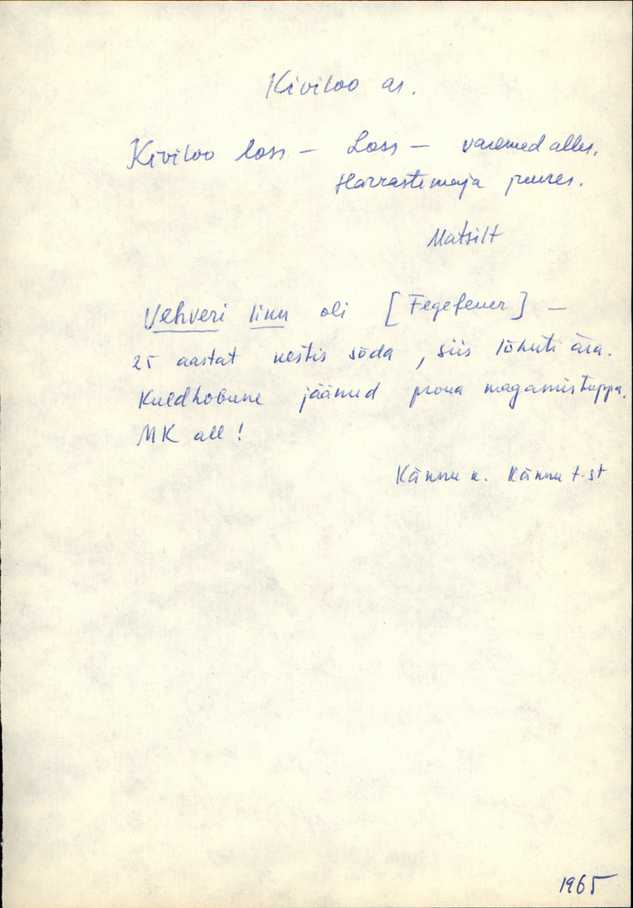 Kiviloo as.
Kiviloo loss — Loss — varemed alles.
Härrastemaja juures.
Matsilt
Vehveri linn oli [Fegefeuer] —
25 aastat kestis sõda, siis lõhuti ära.
Kuldhobune jäänud proua magamistuppa.
MK all!
Kännu k. Kännu t-st
1965